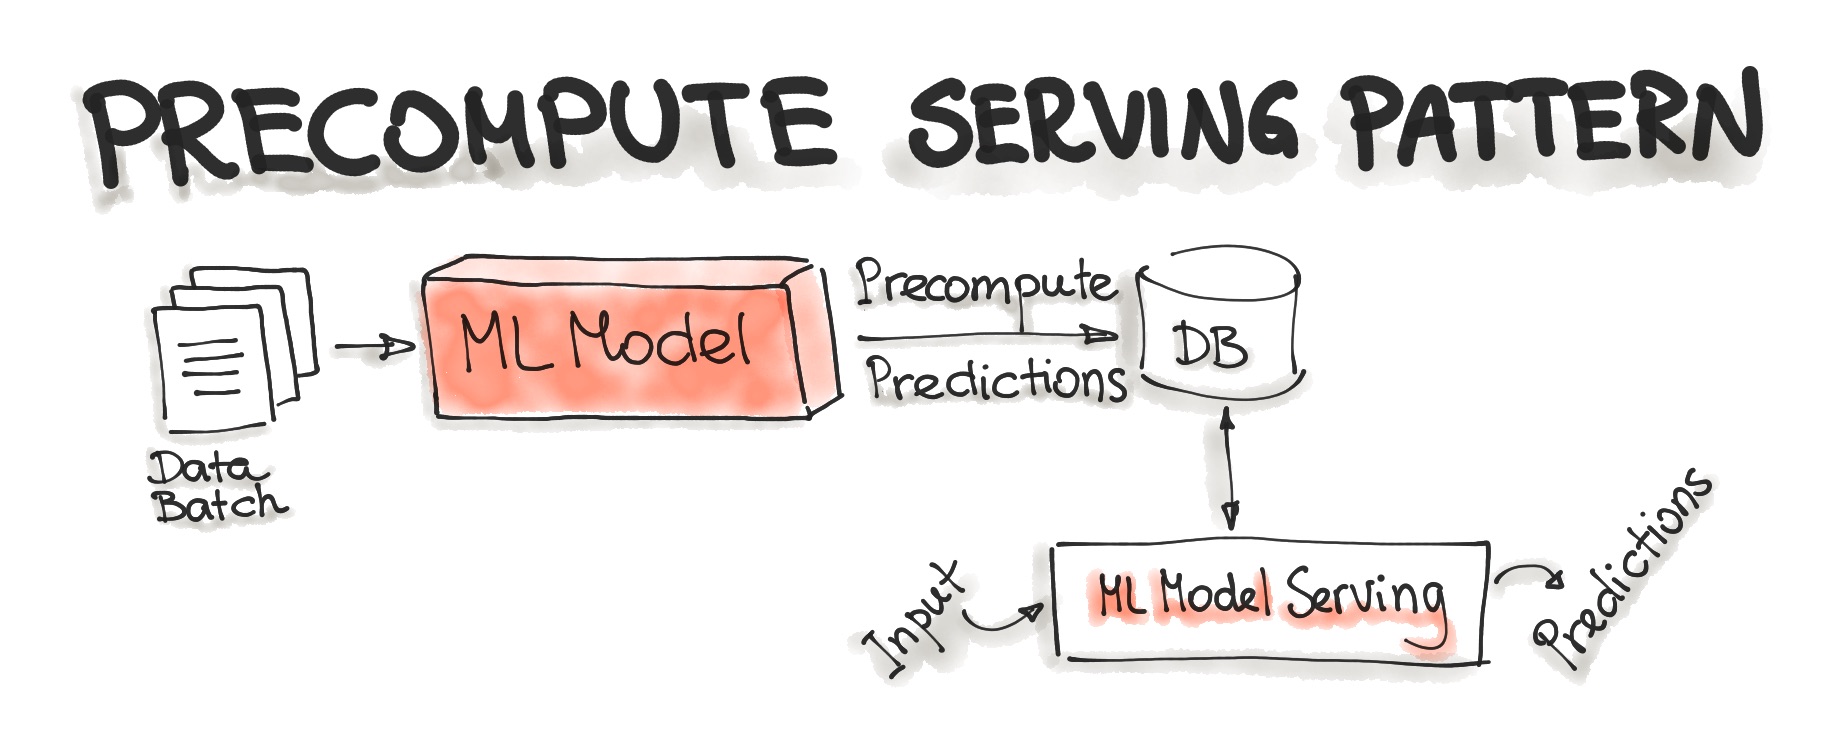 PRECOMPUTE SERVING PATTERN
Data
Batch
ML Model
Precompute
Predictions
DB
Input
ML Model Serving
Predictions